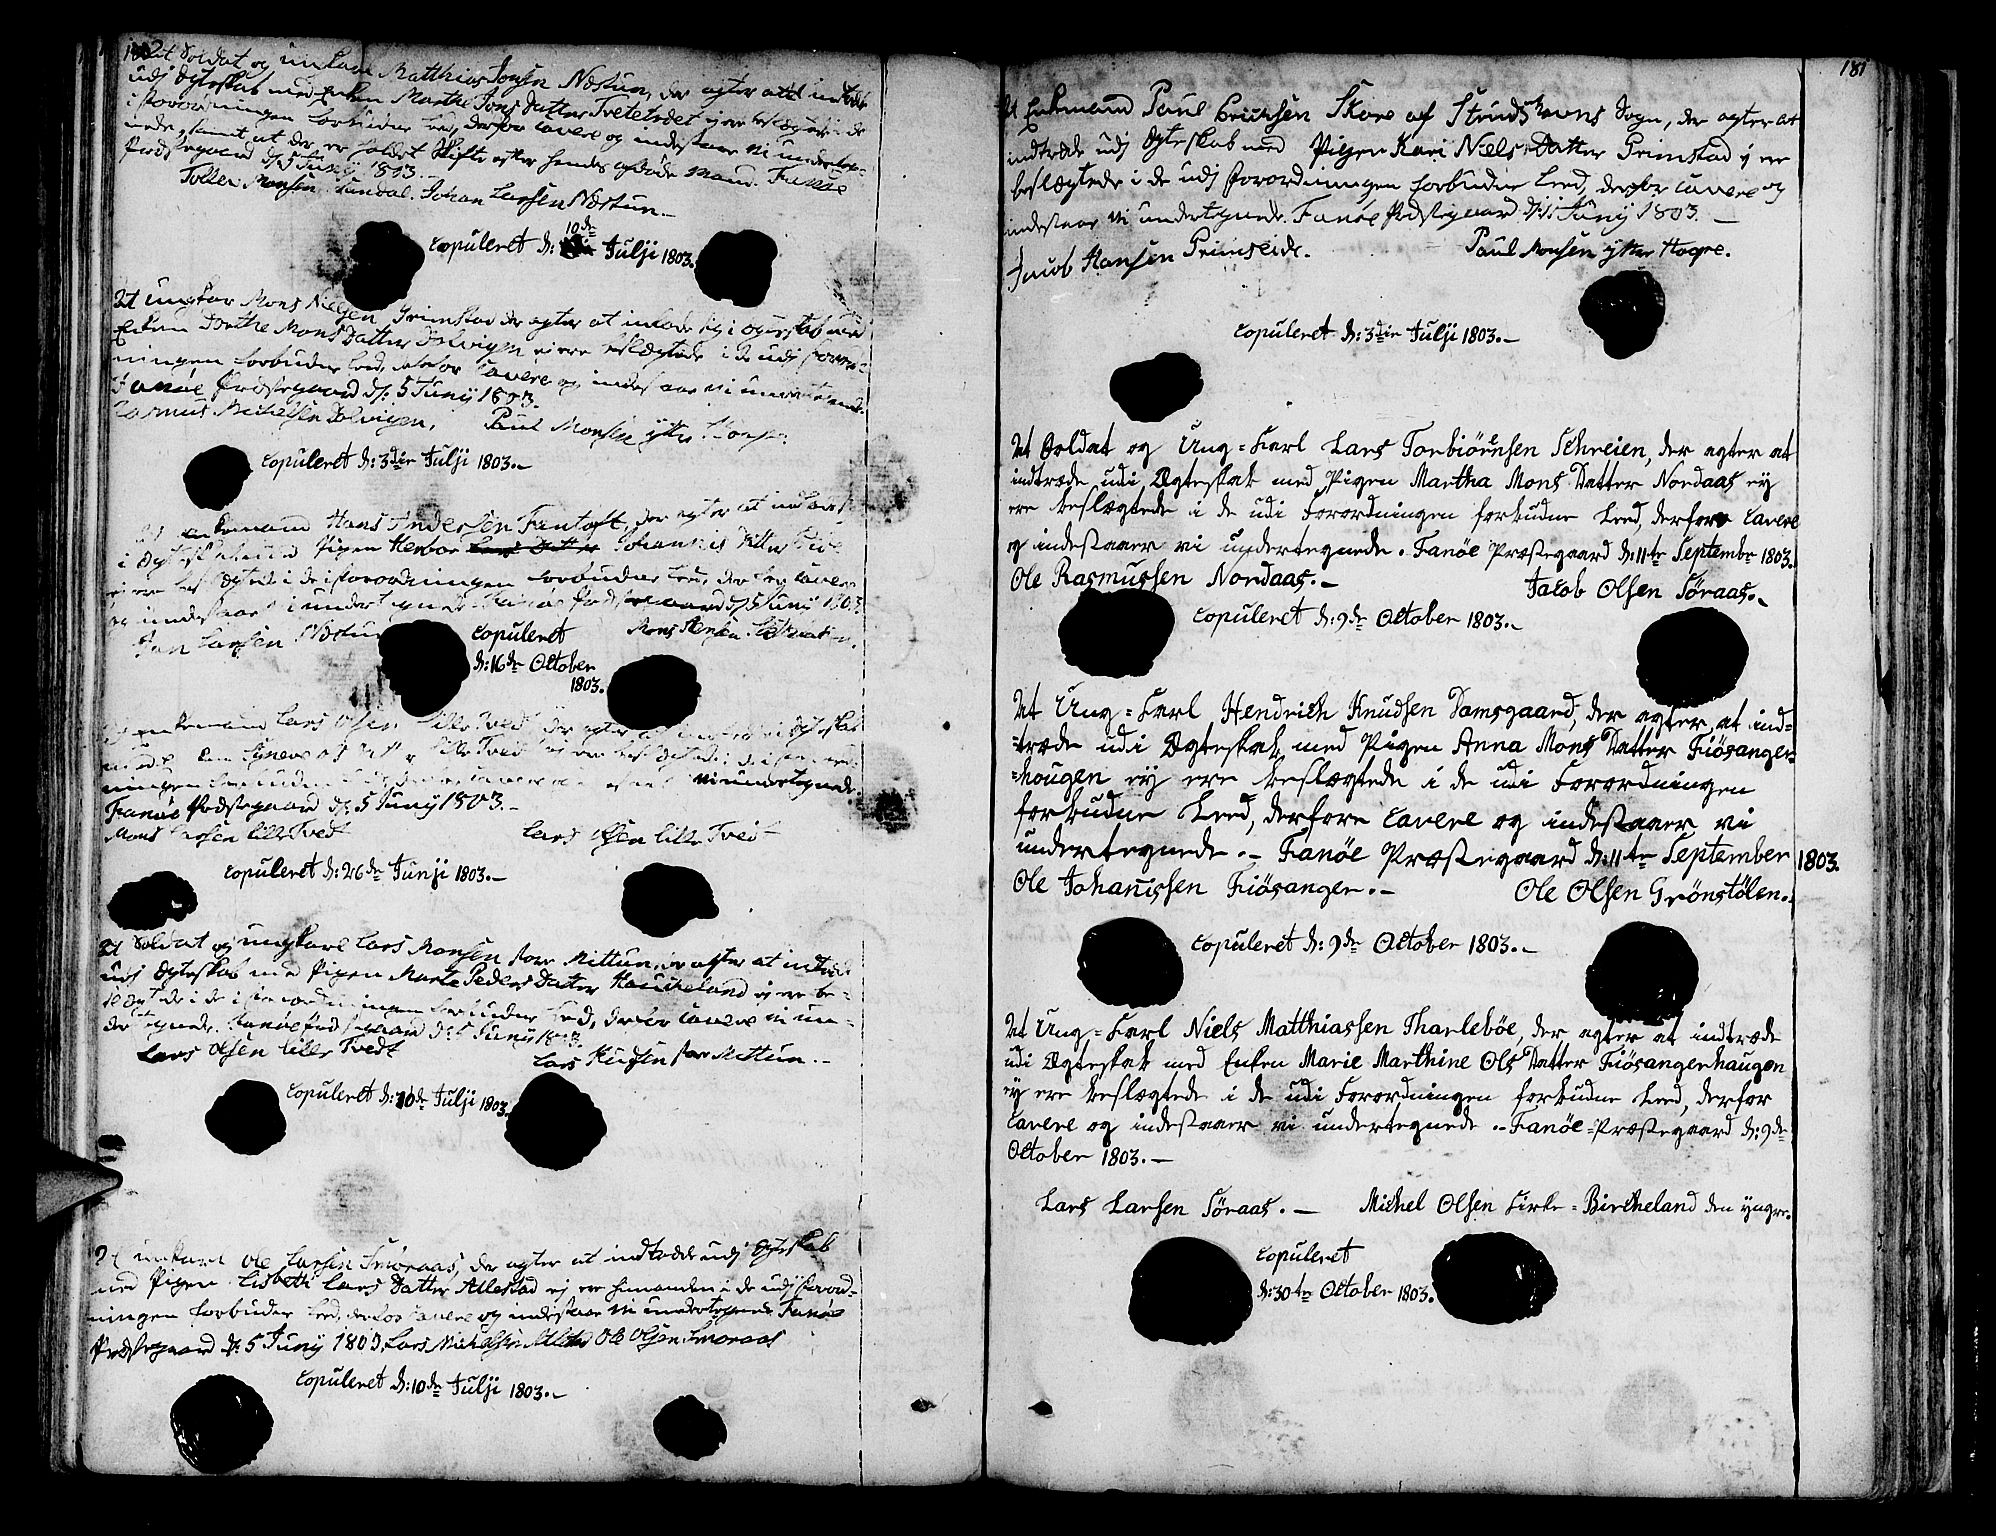 At Soldat og unkarl Matthias Jonsen Næstun, der agter at indtræde
udj Ægteskab med Enken Marthe Jons Datter Tvetetræet ej ere beslægtede i de
i Forordningen forbudne Leed, derfor Cavere og indestaar vi underteg-
nede, samt at der er holdet Skifte efter hendes afdøde Mand. Fanøe
Præstegaard d: 5 Junij 1803.
Tollev Monsen Sundal. Johan Larsen Næstun.
10de
Copuleret d: Julji 1803.
At ungkar Mons Nielsen Grimstad der agter at indlade sig i Ægteskab med
Enken Dorthe Mons Datter Dolvigen ej ere beslægtede i de udj Forord-
ningen forbudne Leed, derfor Cavere og indestaar vi undertegnede.
Fanøe Præstegaard d: 5 Junij 1803.
Rasmus Michelsen Dolvigen. Paul Monsen ytter
Copuleret d: 3die Julji 1803.
At enkemand Hans Andersen Fantoft, der agter at indlade sig
i Ægteskab med Pigen Herbor Johannis Datter
ej ere beslægtede i de i Forordningen forbudne Leed, derfor Cavere
og indestaar vi undertegnede. Fanøe Præstegaard d: 5 Junij 1803
Jon Larsen Næstun Mons
Copuleret
d: 16de October
1803.
At enkemand Lars Olsen lille Tvedt der agter at indtræde i Ægteskab
med lille Tvedt ej ere beslægtede i de i Forord-
ningen forbudne Leed, derfor Cavere vi undertegnede.
Fanøe Præstegaard d: 5 Junij 1803.
Mons Larsen lille Tvedt Lars Olsen lille Tvedt
Copuleret d: 26de Junji 1803.
At Soldat og ungkarl Lars Monsen store Mittun, der agter at indtræde
udj Ægteskab med Pigen Marte Peders Datter Houcheland ej ere be-
slægtede i de i Forordningen forbudne Leed, derfor Cavere vi un-
dertegnede. Fanøe Præstegaard d: 5 Junij 1803.
Lars Olsen lille Tvedt Lars Knudsen store Mittun.
Copuleret d: 10de Julji 1803.
At unkarl Ole Larsen Smøraas, der agter at indtræde udj Ægteskab
med Pigen Lisbeth Lars Datter Allestad ej ere hinanden i de udj Forord-
ningen forbudne Leed, derfor Cavere og indestaar vi undertegnede Fanøe
Præstegaard d: 5 Junij 1803. Lars Michelsen Allestad Ole Olsen Smøraas
Copuleret d: 10de Julji 1803.
181
At Enkemand Paul Erichsen Skare af Strudshavns Sogn, der agter at
indtræde udj Ægteskab med Pigen Kari Niels Datter Grimstad ej ere
beslægtede i de udj Forordningen forbudne Leed, derfor Cavere og
indestaar vi undertegnede. Fanøe Præstegaard d: 11 Junij 1803.
Jacob Hansen Grimseide. Paul Monsen ytter Hope.
Copuleret d: 3die Julji 1803.
At Soldat og Ung-Karl Lars Torbiørnsen Schreien, der agter at
indtræde udi Ægteskab med Pigen Martha Mons Datter Nordaas ey
ere beslægtede i de udi Forordningen forbudne Leed, derfore Cavere
og indestaaer vi undertegnede. Fanöe Præstegaard d: 11te Septembr 1803.
Ole Rasmussen Nordaas. Jacob Olsen Söraas.
Copuleret d: 9de October 1803.
At Ung-Karl Hendrich Knudsen Damsgaard, der agter at ind-
-træde udi Ægteskab med Pigen Anna Mons Datter Fiösanger-
-hougen ey ere beslægtede i de udi Forordningen
forbudne Leed, derfore Cavere og indestaaer vi
undertegnede. Fanöe Præstegaard d: 11te September 1803.
Ole Johanissen Fiösanger. Ole Olsen Grönstölen.
Copuleret d: 9de October 1803.
At Ung-Karl Niels Matthiassen Tharleböe, der agter at indtræde
udi Ægteskab med Enken Marie Marthine Ols Datter Fiösangerhaugen
ey ere beslægtede i de udi Forordningen forbudne Leed, derfor
Cavere og indestaaer vi undertegnede. Fanöe-Præstegaard d: 9de
October 1803.
Lars Larsen Söraas. Michel Olsen Kirke-Bircheland den yngre.
Copuleret
d: 30te October 1803.